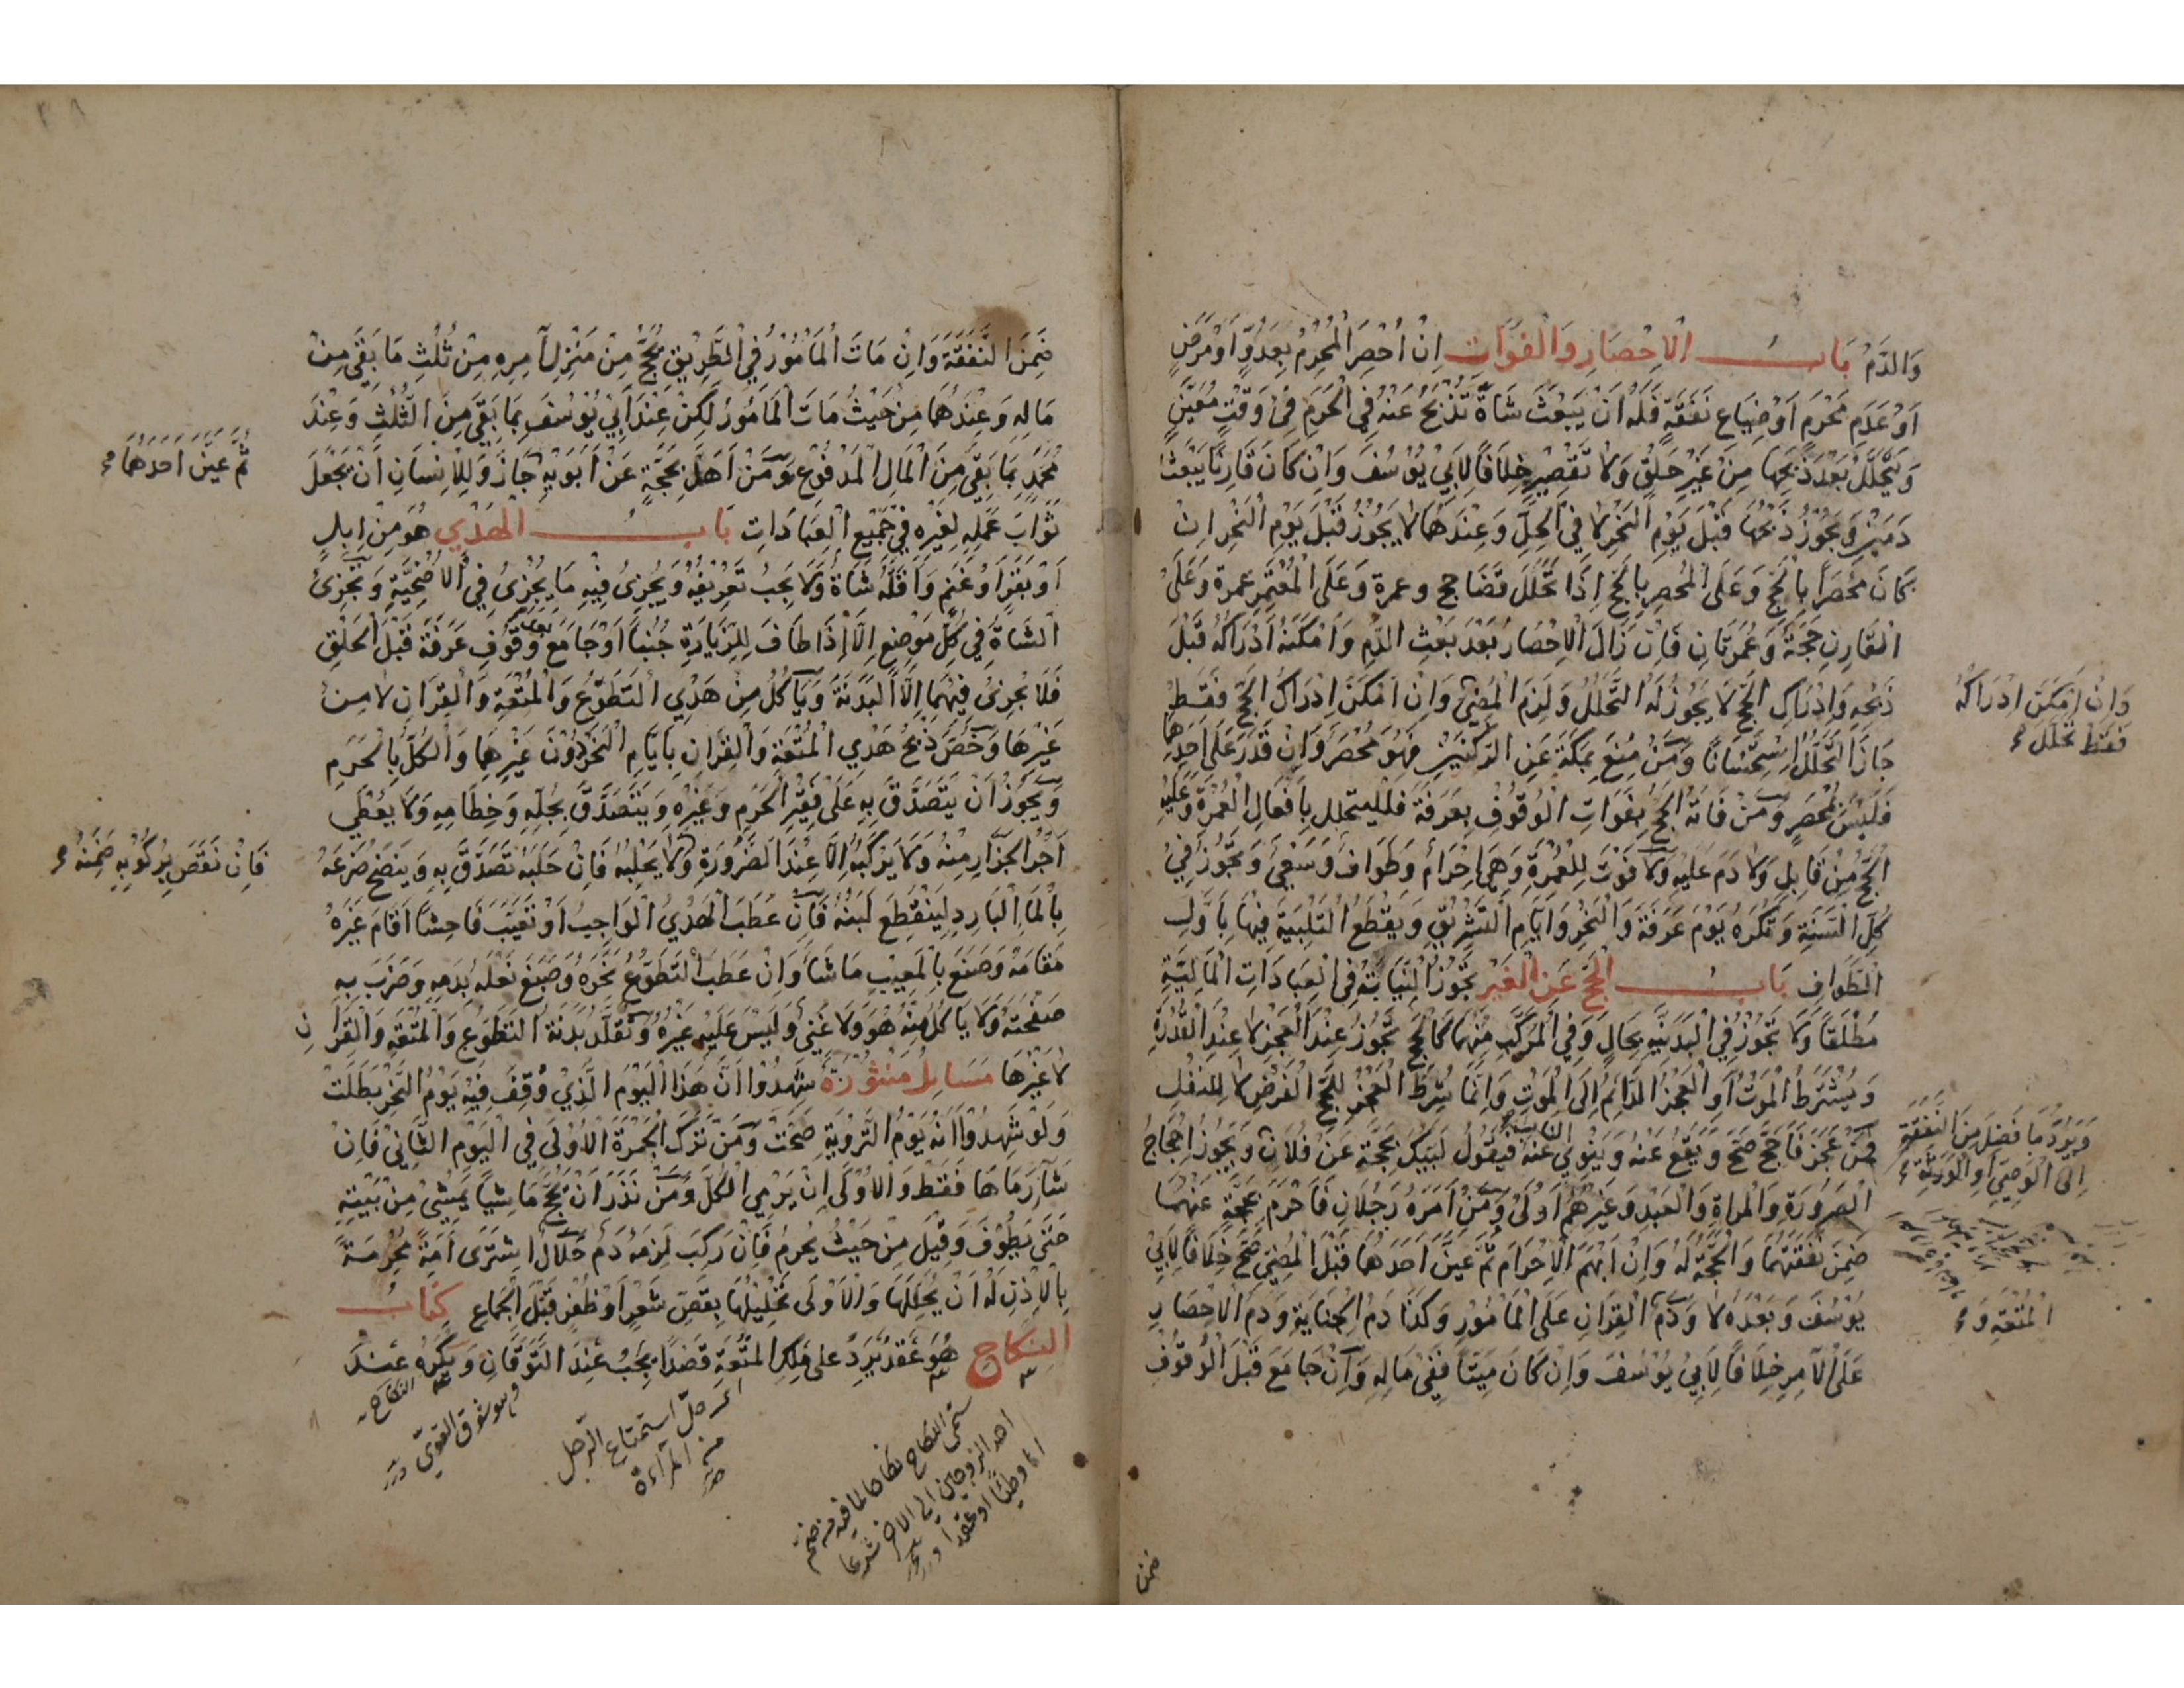 والدم باب الإحصار والفوات إن أحصر المحرم بعدو أو مرض
أو عدم محرم أو ضياع نفقة فله أن يبعث شاة تذبح عنه في الحرم في وقت معين
ويتحلل بعد ذبحها من غير حلق ولا تقصير خلافا لأبي يوسف وإن كان قارنا يبعث
دمين ويجوز ذبحها قبل يوم النحر لا في الحل وعندهما لا يجوز قبل يوم النحر إن
كان محصرا بالحج وعلى المحصر بالحج إذا تحلل قضا حج وعمرة وعلى المعتمر عمرة وعلى
القارن حجة وعمرتان فإن زال الإحصار بعد بعث الدم وأمكنه أدراكه قبل
ذبحه وإدراك الحج لا يجوز له التحلل ولزم المضي وإن أمكن إدراك الحج فقط
جاز التحلل استحسانا ومن منع بمكة عن الركنين فهو محصر وإن قدر على أحدها
فليس بمحصر ومن فاته الحج بفوات الوقوف بعرفة فليتحلل بأفعال العمرة وعليه
الحج من قابل ولا دم عليه ولا فوت للعمرة وهي إحرام وطواف وسعي وتجوز في
كل السنة وتكره يوم عرفة والنحر وأيام التشريق ويقطع التلبية فيها بأول
الطواف باب الحج عن الغير تجوز النيابة في العبادات المالية
مطلقا ولا تجوز في البدنية بحال وفي المركب منهما كالحج تجوز عند العجز لا عند القدرة
ويشترط الموت أو العجز الدائم إلى الموت وإنما شرط العجز للحج الفرض لا للنفل
فمن عجز فأحج صح ويقع عنه وينوي النائب عنه فيقول لبيك بحجة عن فلان ويجوز احجاج
الصرورة والمراة والعبد وغيرهم أولى ومن أمره رجلان فأحرم بحجة عنهما
ضمن نفقتهما والحجة له وإن أبهم الإحرام ثم عين أحدهما قبل المضي صح خلافا لأبي
يوسف وبعده لا ودم القران على المأمور وكذا دم الجناية ودم الاحصار
على الآمر خلافا لأبي يوسف وإن كان ميتا ففي ماله وإن جامع قبل الوقوف
وإن أمكن إدراكه
فقط تحلل
ويرد ما فضل من النفقة
إلى الوصي أو الورثة
المتعة و
ضمن
ضمن النفقة وإن مات المأمور في الطريق يحج من منزل آمره من ثلث ما بقي من
ماله وعندهما من حيث مات المأمور لكن عند أبي يوسف بما بقي من الثلث وعند
محمد بما بقي من المال المدفوع ومن أهل بحجة عن أبويه جاز وللإنسان أن يجعل
ثواب عمله لغيره في جميع العبادات باب الهدي هو من إبل
أو بقر أو غنم وأقله شاة ولا يجب تعريفه ويجزئ فيه ما يجزئ في الأضحية وتجزئ
الشاة في كل موضع إلا إذا طاف للزيارة جنبا أو جامع بعد وقوف عرفة قبل الحلق
فلا يجزئ فيهما إلا البدنة ويأكل من هدي التطوع والمتعة والقران لا من
غيرها وخص ذبح هدي المتعة والقران بأيام النحر دون غيرها والكل بالحرم
ويجوز أن يتصدق به على فقير الحرم وغيره ويتصدق بجله وخطامه ولا يعطي
أجر الجزار منه ولا يركبه إلا عند الضرورة ولا يحلبه فإن حلبه تصدق به وينضح ضرعه
بالماء البارد لينقطع لبنه فإن عطب الهدي الواجب أو تعيب فاحشا أقام غيره
مقامه وصنع بالمعيب ما شاء وإن عطب التطوع نحره وصبغ نعله بدمه وضرب به
صفحته ولا يأكل منه هو ولا غني وليس عليه غيره وتقلد بدنة التطوع والمتعة والقران
لا غيرها مسايل منثورة شهدوا أن هذا اليوم الذي وقف فيه يوم النحر بطلت
ولو شهدوا أنه يوم التروية صحت ومن ترك الجمرة الأولى في اليوم الثاني فإن
شاء رماها فقط والأولى ان يرمي الكل ومن نذر أن يحج ماشيا يمشي من بيته
حتى يطوف وقيل من حيث يحرم فإن ركب لزمه دم حلال اشترى أمة محرمة
بالإذن له أن يحللها والأولى تحليلها بقص شعر أو ظفر قبل الجماع كتاب
النكاح هو عقد يرد على ملك المتعة قصدا يجب عند التوقان ويكره عند
ثم عين أحدهما
فإن نقص بركوبه ضمنه
سمي النكاح نكاحا لما فيه من ضم
احد الزوجين الى الاخر شرعا
اما وطئا او عقدا
استمتاع الرجل
من المرآءة
وهو شوق القوي
النكاح